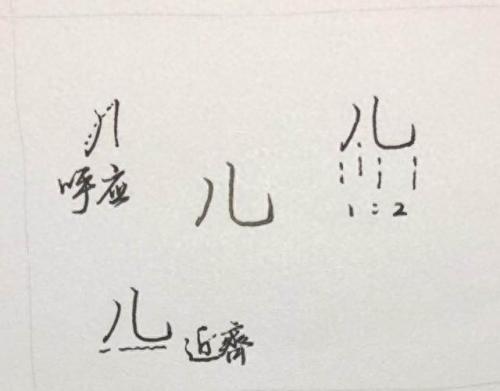 儿
呼应
儿
1:2
儿
儿 近齊